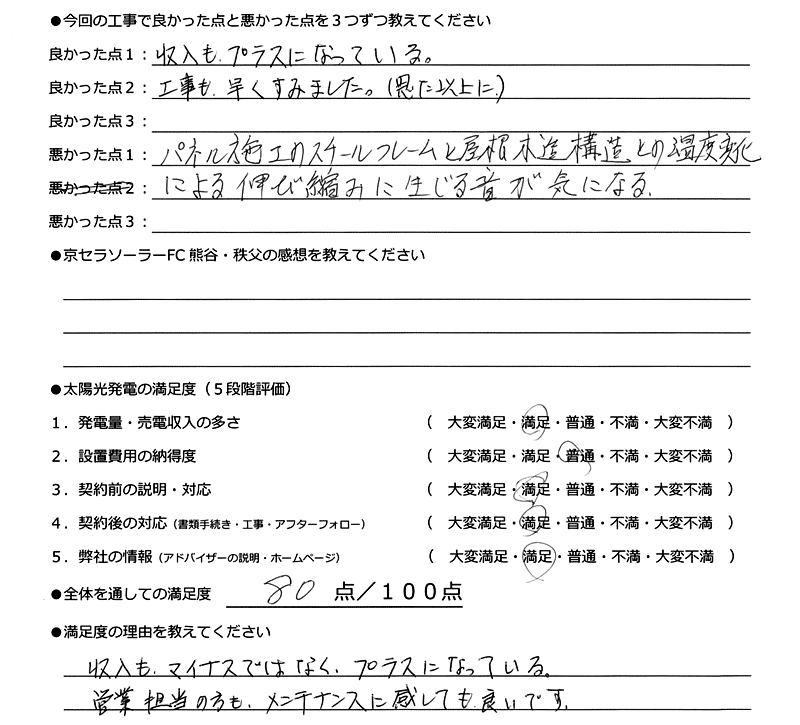 ●今回の工事で良かった点と悪かった点を３つずつ教えてください
良かった点１：収入も、プラスになっている。
良かった点２：工事も、早くすみました。(思た以上に、)
良かった点３：
悪かった点１：パネル施工のスチールフレームと屋根木造構造との温度変化
悪かった点２：による伸び縮みに生じる音が気になる、
悪かった点３：
●京セラソーラーFC 熊谷・秩父の感想を教えてください
●太陽光発電の満足度（５段階評価）
１．発電量・売電収入の多さ （ 大変満足・満足・普通・不満・大変不満 ）
２．設置費用の納得度 （ 大変満足・満足・普通・不満・大変不満 ）
３．契約前の説明・対応 （ 大変満足・満足・普通・不満・大変不満 ）
４．契約後の対応（書類手続き・工事・アフターフォロー） （ 大変満足・満足・普通・不満・大変不満 ）
５．弊社の情報（アドバイザーの説明・ホームページ） （ 大変満足・満足・普通・不満・大変不満 ）
●全体を通しての満足度 80 点／１００点
●満足度の理由を教えてください
収入も、マイナスではなく、プラスになっている。
営業担当の方も、メンテナンスに感しても良いです。